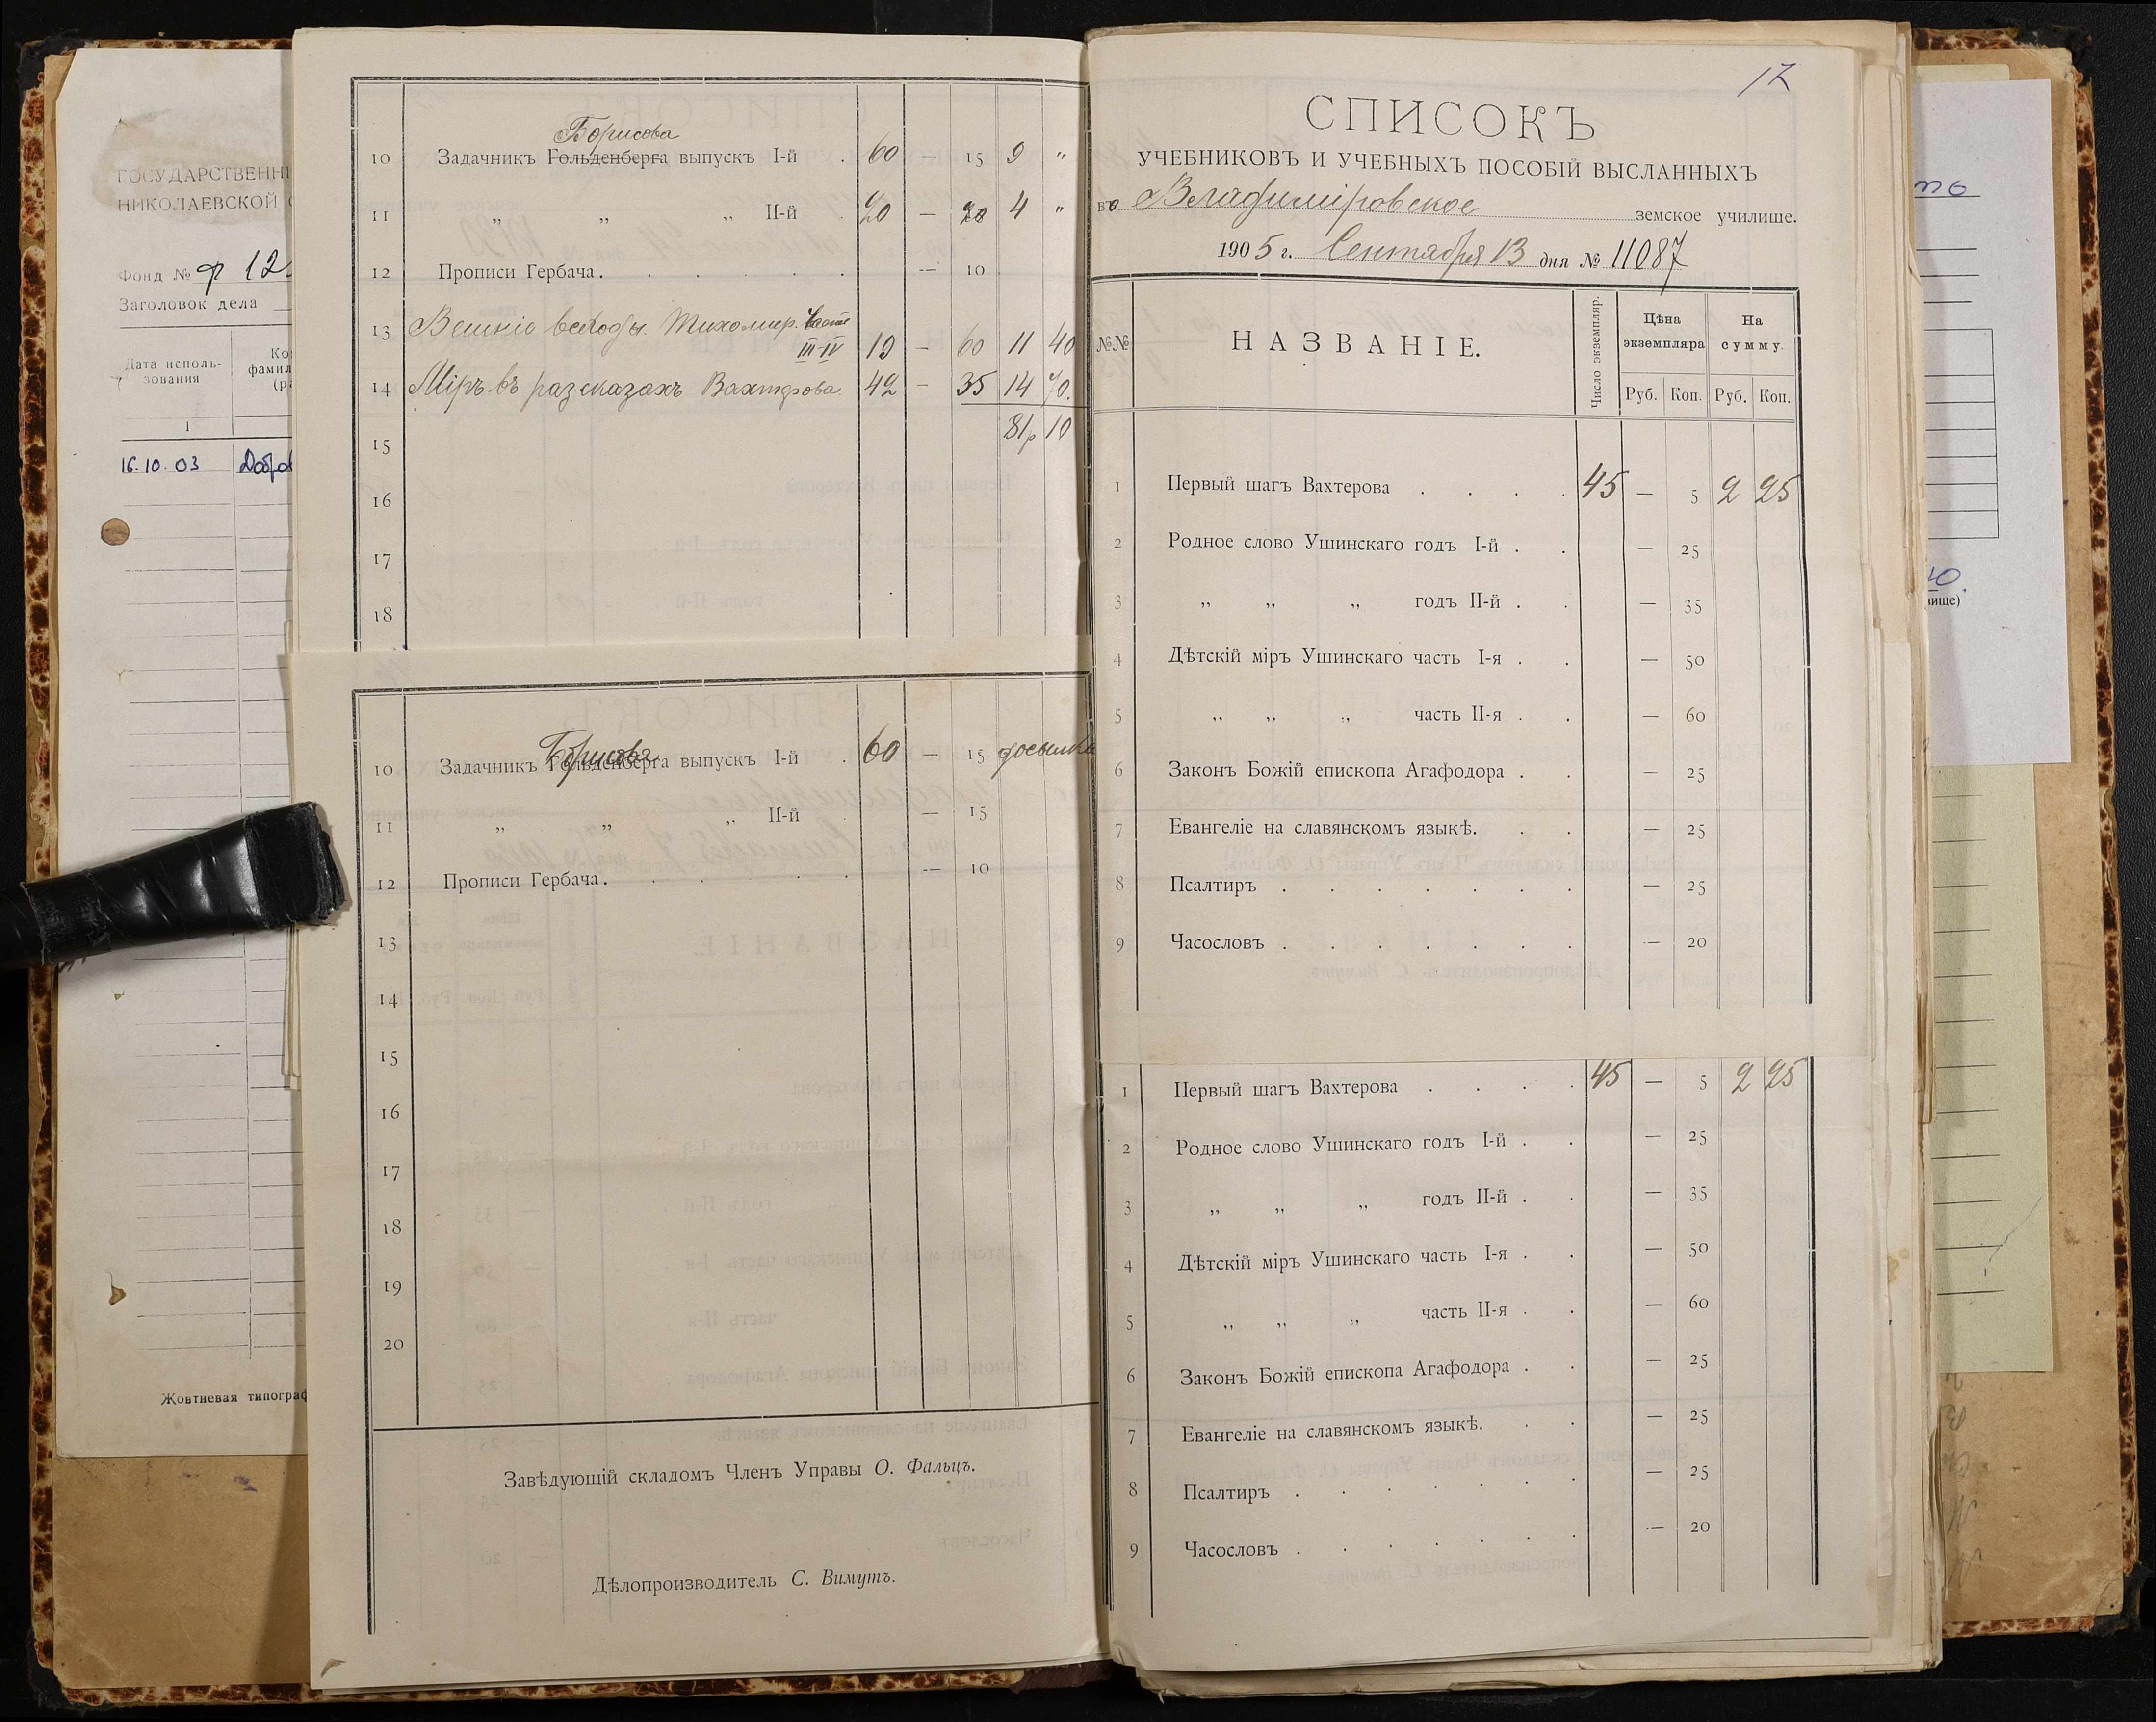 ГОСУДАРСТВЕНН
НИКОЛАЕВСКОЙ
Фонд № ф 12
Заголовок дела
Дата исполь-
зования
1
16.10.03
Жовтневая типограф
Борисова
10 Задачникъ Гольденберга выпускъ I-й . 60 — 15 9 „
11 „ „ „ II-й . 20 — 20 4 „
12 Прописи Гербача. . . . . . — 10
13 Тихомир. Части
III-IV 19 — 60 11 40
14 Міръ въ разсказахъ Вахтерова. 42 — 35 14 70.
15 81р 10
16
17
18
Борисова
10 Задачникъ Гольденберга выпускъ I-й . 60 — 15 досылка
11 „ „ „ II-й . — 15
12 Прописи Гербача. . . . . . — 10
13
14
15
16
17
18
19
20
Завѣдующій складомъ Членъ Управы О. Фальцъ.
Дѣлопроизводитель С. Вимутъ.
17
СПИСОКЪ
УЧЕБНИКОВЪ И УЧЕБНЫХЪ ПОСОБІЙ ВЫСЛАННЫХЪ
во Владиміровское земское училише.
1905 г. Сентября 13 дня № 11087
№№ НАЗВАНІЕ. Число экземпляр. Цѣна экземпляра На сумму.
Руб. Коп. Руб. Коп.
1 Первый шагъ Вахтерова . . . . 45 — 5 2 25
2 Родное слово Ушинскаго годъ I-й . . — 25
3 „ „ „ годъ II-й . . — 35
4 Дѣтскій міръ Ушинскаго часть I-я . . — 50
5 „ „ „ часть II-я . . — 60
6 Законъ Божій епископа Агафодора . . — 25
7 Евангеліе на славянскомъ языкѣ. . . — 25
8 Псалтирь . . . . . . . — 25
9 Часословъ . . . . . . . — 20
1 Первый шагъ Вахтерова . . . . 45 — 5 2 25
2 Родное слово Ушинскаго годъ I-й . . — 25
3 „ „ „ годъ II-й . . — 35
4 Дѣтскій міръ Ушинскаго часть I-я . . — 50
5 „ „ „ часть II-я . . — 60
6 Законъ Божій епископа Агафодора . . — 25
7 Евангеліе на славянскомъ языкѣ. . . — 25
8 Псалтирь . . . . . . . — 25
9 Часословъ . . . . . . . — 20